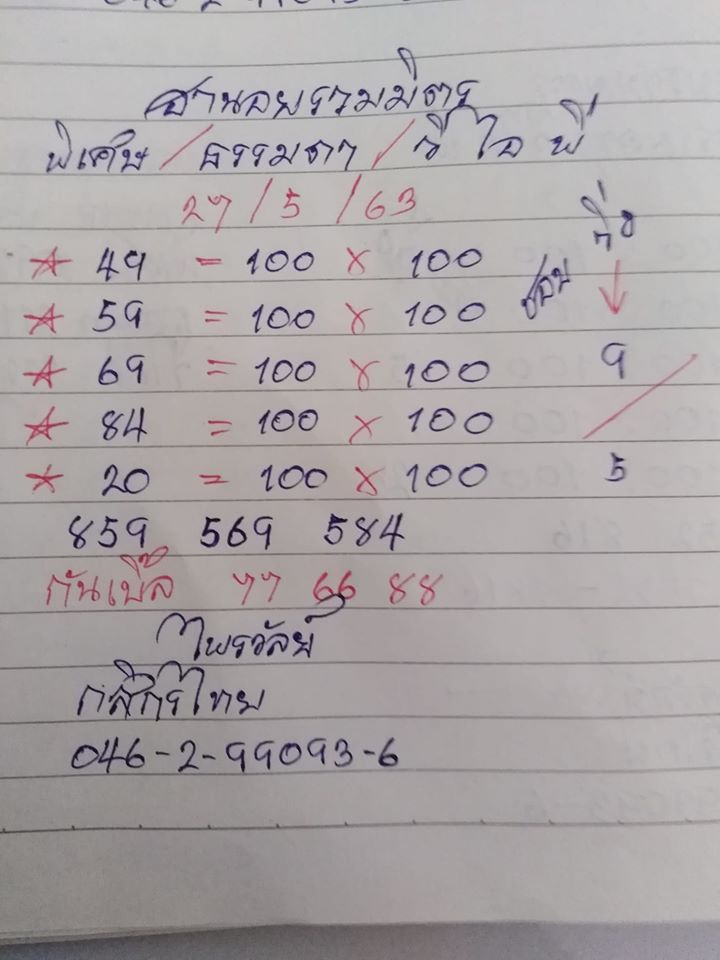 ฮานอยรวมมิตร
พิเศษ / ธรรมดา / วี ไอ พี
27 / 5 / 63
49 = 100 x 100
59 = 100 x 100
69 = 100 x 100
84 = 100 x 100
20 = 100 x 100
ชอบ
วิ่ง
9 / 5
859 569 584
กันเบิ้ล 77 66 88
ไพรวัลย์
กสิกรไทย
046-2-99093-6